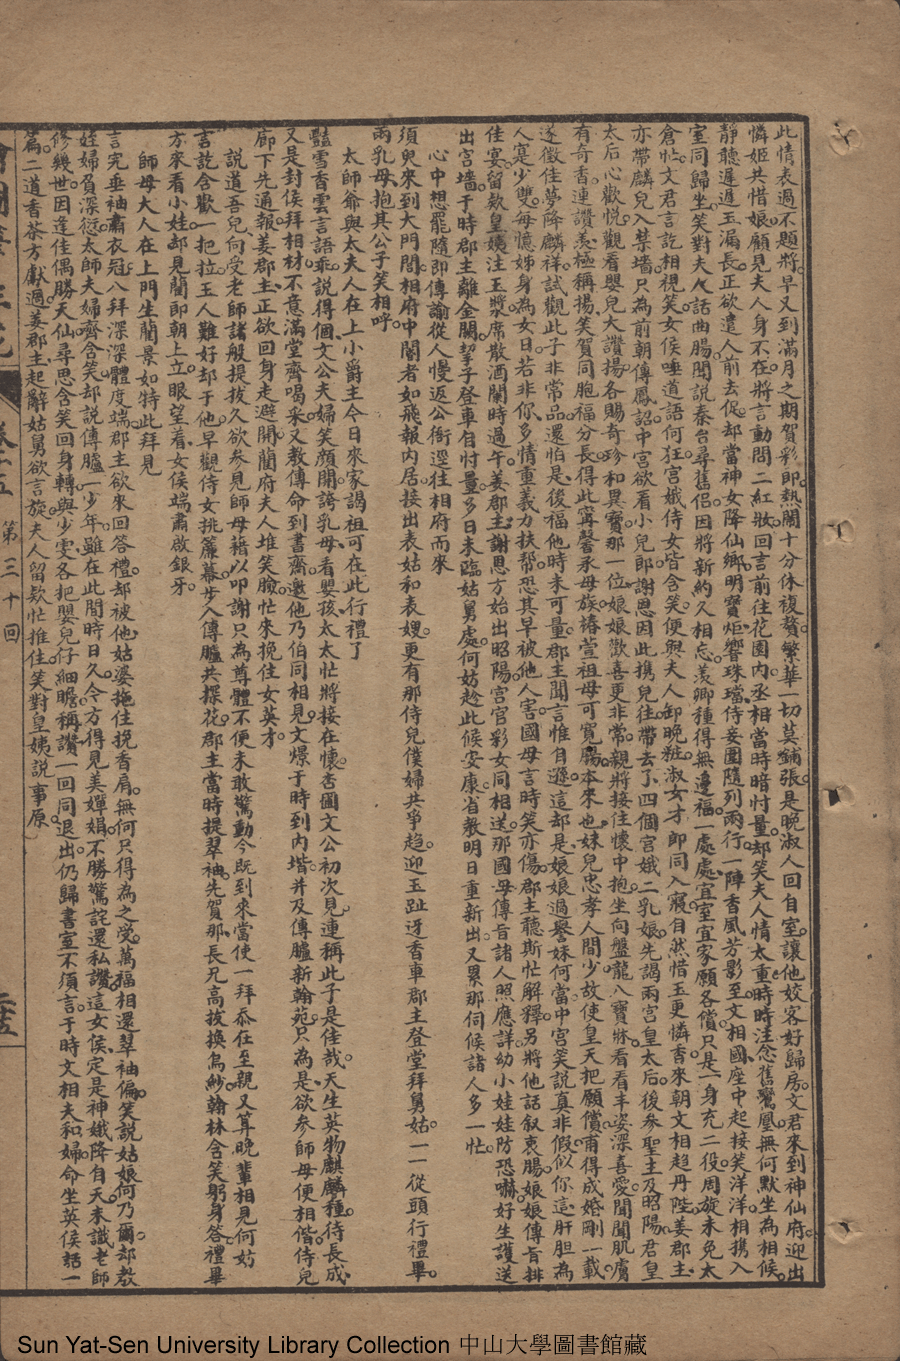 此情表過不題將。早又到滿月之期賀彩即熱鬧十分休複贅。繁華一切莫鋪張。是晚淑人回自室。讓他姣客好歸房。文君來到神仙府。迎出
憐姬共惜娘。願見夫人身不在。將言動問二紅妝。回言前往花園内。丞相當時暗忖量。却笑夫人情太重。時時注念舊鸞凰。無何默坐為相候。
靜聽遲遲玉漏長。正欲遣人前去促。却當神女降仙鄉。明寶炬。響珠璫。侍妾團隨列兩行。一陣香風芳影至。文相國。座中起接笑洋洋。相携入
室同歸坐。笑對夫人話曲腸。聞說秦台尋舊侶。因將新約久相忘。羨卿種得無邊福。一處處。宜室宜家願各償。只是一身充二役。周旋未免太
倉忙。文君言訖相視笑。女侯唾道語何狂。宮娥侍女皆含笑。便與夫人卸晚粧。淑女才郎同入寢。自然惜玉更憐香。來朝文相趨丹陛。姜郡主。
亦帶麟兒入禁墻。只為前朝傳鳳詔。中宮欲看小兒郎。謝恩因此携兒往。帶去了。四個宮娥二乳娘。先謁兩宮皇太后。後參聖主及昭陽。君皇
太后心歡悅。觀看嬰兒大讚揚。各賜奇珍和異寶。那一位。娘娘歡喜更非常。親將接住懷中抱。坐向盤龍八寶牀。看看丰姿深喜愛。聞聞肌膚
有奇香。連讚羨。極稱揚。笑賀同胞福分長。得此寗馨承母族。椿萱祖母可寬腸。本來也。妹兒忠孝人間少。故使皇天把願償。甫得成婚剛一載。
遂徵佳夢降麟祥。試觀此子非常品。還怕是。後福他時未可量。郡主聞言惟自遜。這却是。娘娘過譽妹何當。中宮笑說真非假。似你這。肝胆為
人寔少雙。每憶姊身為女日。若非你。多情重義力扶幫。恐其早被他人害。國母言時笑亦傷。郡主聽斯忙解釋。另將他話叙衷腸。娘娘傳旨排
佳宴。留欵皇姨注玉漿。席散酒闌時過午。姜郡主。謝恩方始出昭陽。宮官彩女同相送。那國母。傳旨諸人照應詳。幼小娃娃防恐嚇。好生護送
出宮墻。于時郡主離金闕。挈子登車自忖量。多日未臨姑舅處。何妨趁此候安康。省教明日重新出。又累那。伺候諸人多一忙
心中想罷隨即傳諭從人慢返公衙逕往相府而來
須臾來到大門閭。相府中。閽者如飛報內居。接出表姑和表嫂。更有那。侍兒僕婦共爭趋。迎玉趾。迓香車。郡主登堂拜舅姑。一一從頭行禮畢。
兩乳母。抱其公子笑相呼。
太師爺與太夫人在上小爵主今日來家謁祖可在此行禮了
豔雪香雲言語乖。說得個。文公夫婦笑顏開。誇乳母。看嬰孩。太太忙將接在懷。杏圃文公初次見。連稱此子是佳哉。天生英物麒麟種。待長成。
又是封侯拜相材。不意滿堂齊喝采。又教傳命到書齋。邀他乃伯同相見。文燝于時到内堦。并及傳臚新翰苑。只為是。欲參師母便相偕。侍兒
廊下先通報。姜郡主。正欲回身走避開。蘭府夫人堆笑臉。忙來挽住女英才。
說道吾兒向受老師諸般提拔久欲參見師母藉以叩謝只為尊體不便未敢驚動今既到來當使一拜忝在至親又算晚輩相見何妨
言訖含歡一把拉。玉人難好却于他。早觀侍女挑簾幕。步入傳臚共探花。郡主當時提翠袖。先賀那。長兄高拔換烏紗。翰林含笑躬身答。禮畢
方來看小娃。却見蘭郎朝上立。眼望着。女侯端肅啟銀牙。
師母大人在上門生蘭景如特此拜見
言完垂袖肅衣冠。八拜深深體度端。郡主欲來回答禮。却被他。姑婆拖住挽香肩。無何只得為之受。萬福相還翠袖偏。笑說姑娘何乃爾。却教
姪婦負深愆。太師夫婦齊含笑。却說傳臚一少年。雖在此間時日久。今方得見美嬋娟。不勝驚詫還私讚。這女侯。定是神娥降自天。未識老師
修幾世。因逢佳偶勝天仙。尋思含笑回身轉。與少雯。各把嬰兒仔細瞻。稱讚一回同退出。仍歸書室不須言。于時文相夫和婦。命坐英侯話一
篇。二道香茶方獻過。姜郡主。起辭姑舅欲言旋。夫人留欵忙推住。笑對皇姨說事原。
卷十五 第三十回